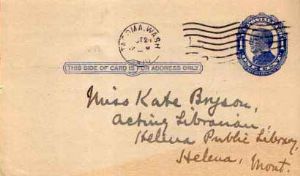 TACOMA, WASH
THIS SIDE OF CARD IS FOR ADDRESS ONLY
Miss Kate Bryson,
Acting Librarian,
Helena Public Library,
Helena, Mont.